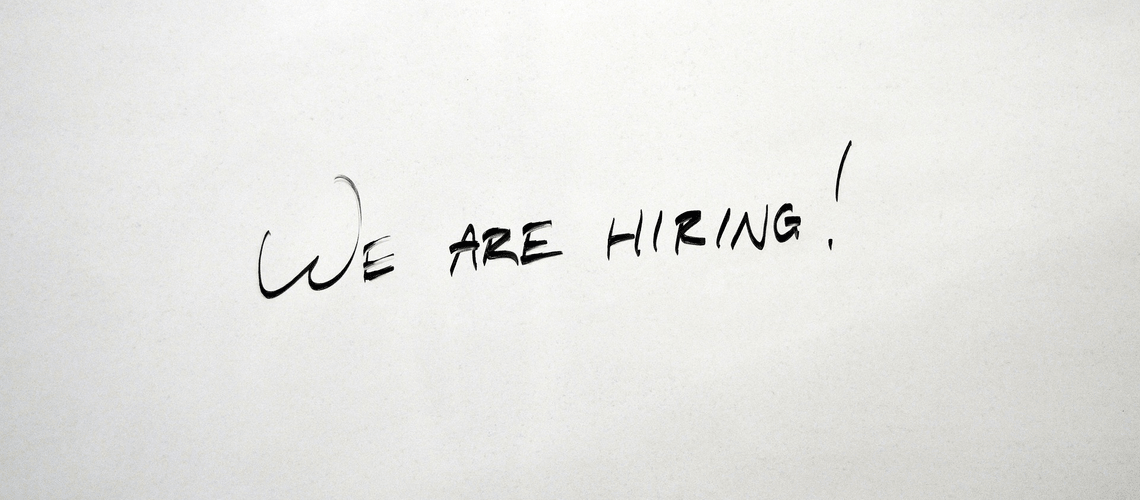 WE ARE HIRING!